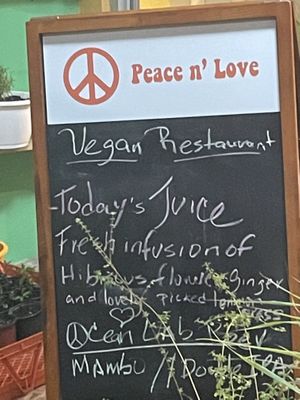 Peace n' Love
Vegan Restaurant
Today's Juice
Fresh infusion of
Hibiscus flower Ginger
and lovely picked lemon
grass
Mambo /